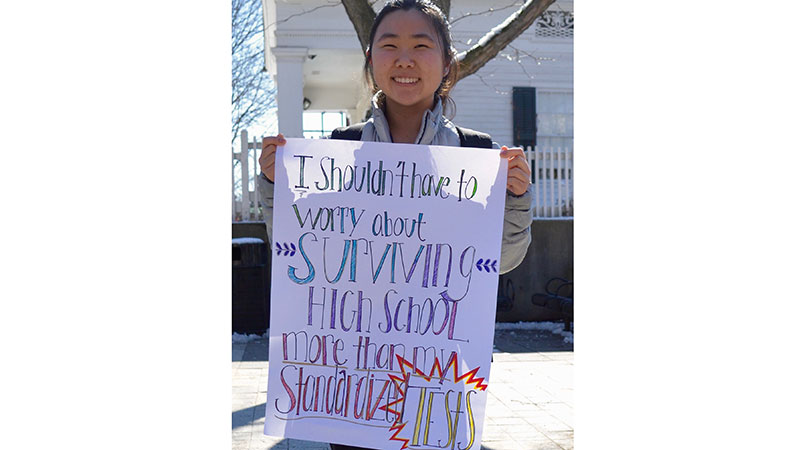 I Shouldn't have to
worry about
Surviving
HIGH SchooL
more than my
Standardized
TESTS